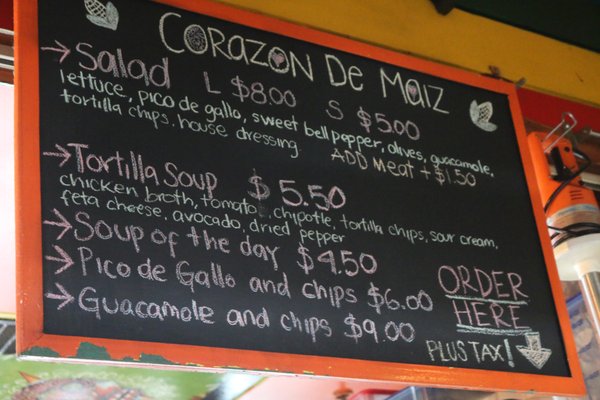 CORAZON De Maiz
→ Salad L $8.00 S $5.00
lettuce, pico de gallo, sweet bell pepper, olives, guacamole,
tortilla chips, house dressing ADD Meat + $1.50
→ Tortilla Soup $5.50
chicken broth, tomato, chipotle, tortilla chips, sour cream,
feta cheese, avocado, dried pepper
→ Soup of the day $4.50
→ Pico de Gallo and chips $6.00
→ Guacamole and chips $9.00
ORDER
HERE
PLUS TAX!